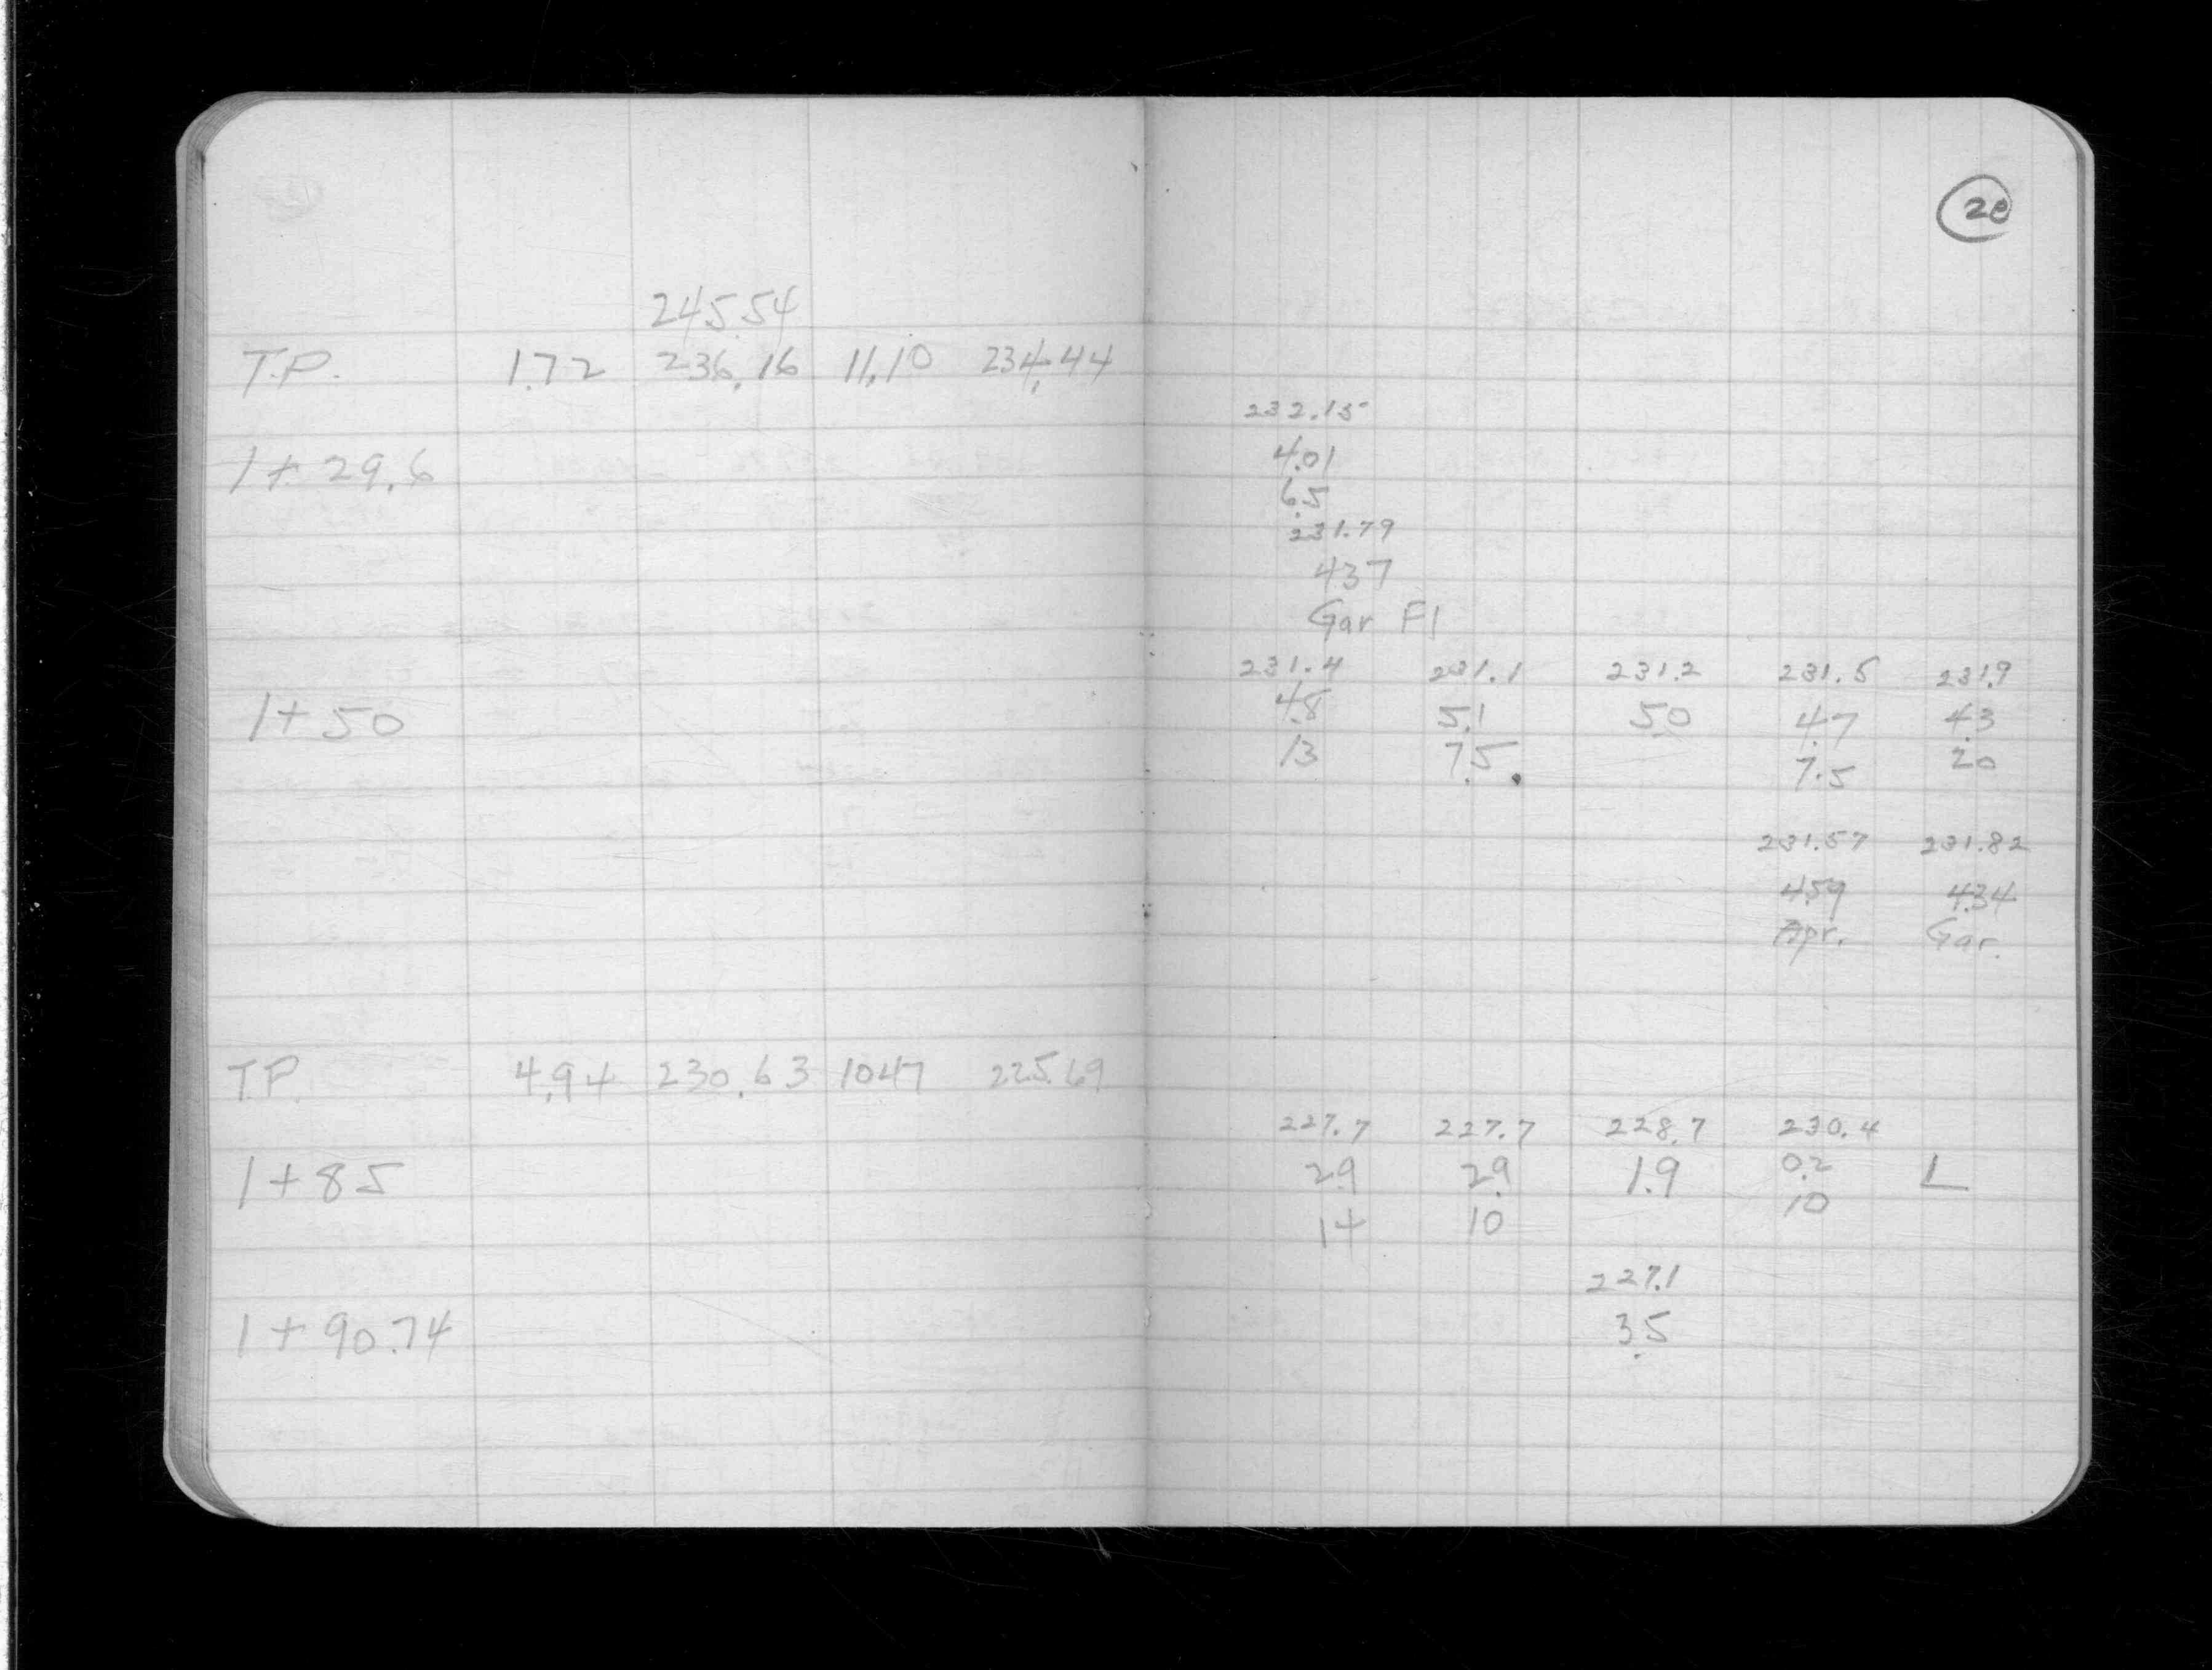 20
245.54
T.P. 1.72 236.16 11.10 234.44
232.15
1+29.6 4.01
6.5
231.79
4.37
Gar Fl
231.4 231.1 231.2 231.5 231.9
1+50 4.8 5.1 5.0 4.7 4.3
13 7.5 7.5 20
231.57 231.82
4.59 4.34
Apr. Gar.
T.P. 4.94 230.63 10.47 225.69
227.7 227.7 228.7 230.4
1+85 2.9 2.9 1.9 0.2 L
14 10 10
227.1
1+90.74 3.5